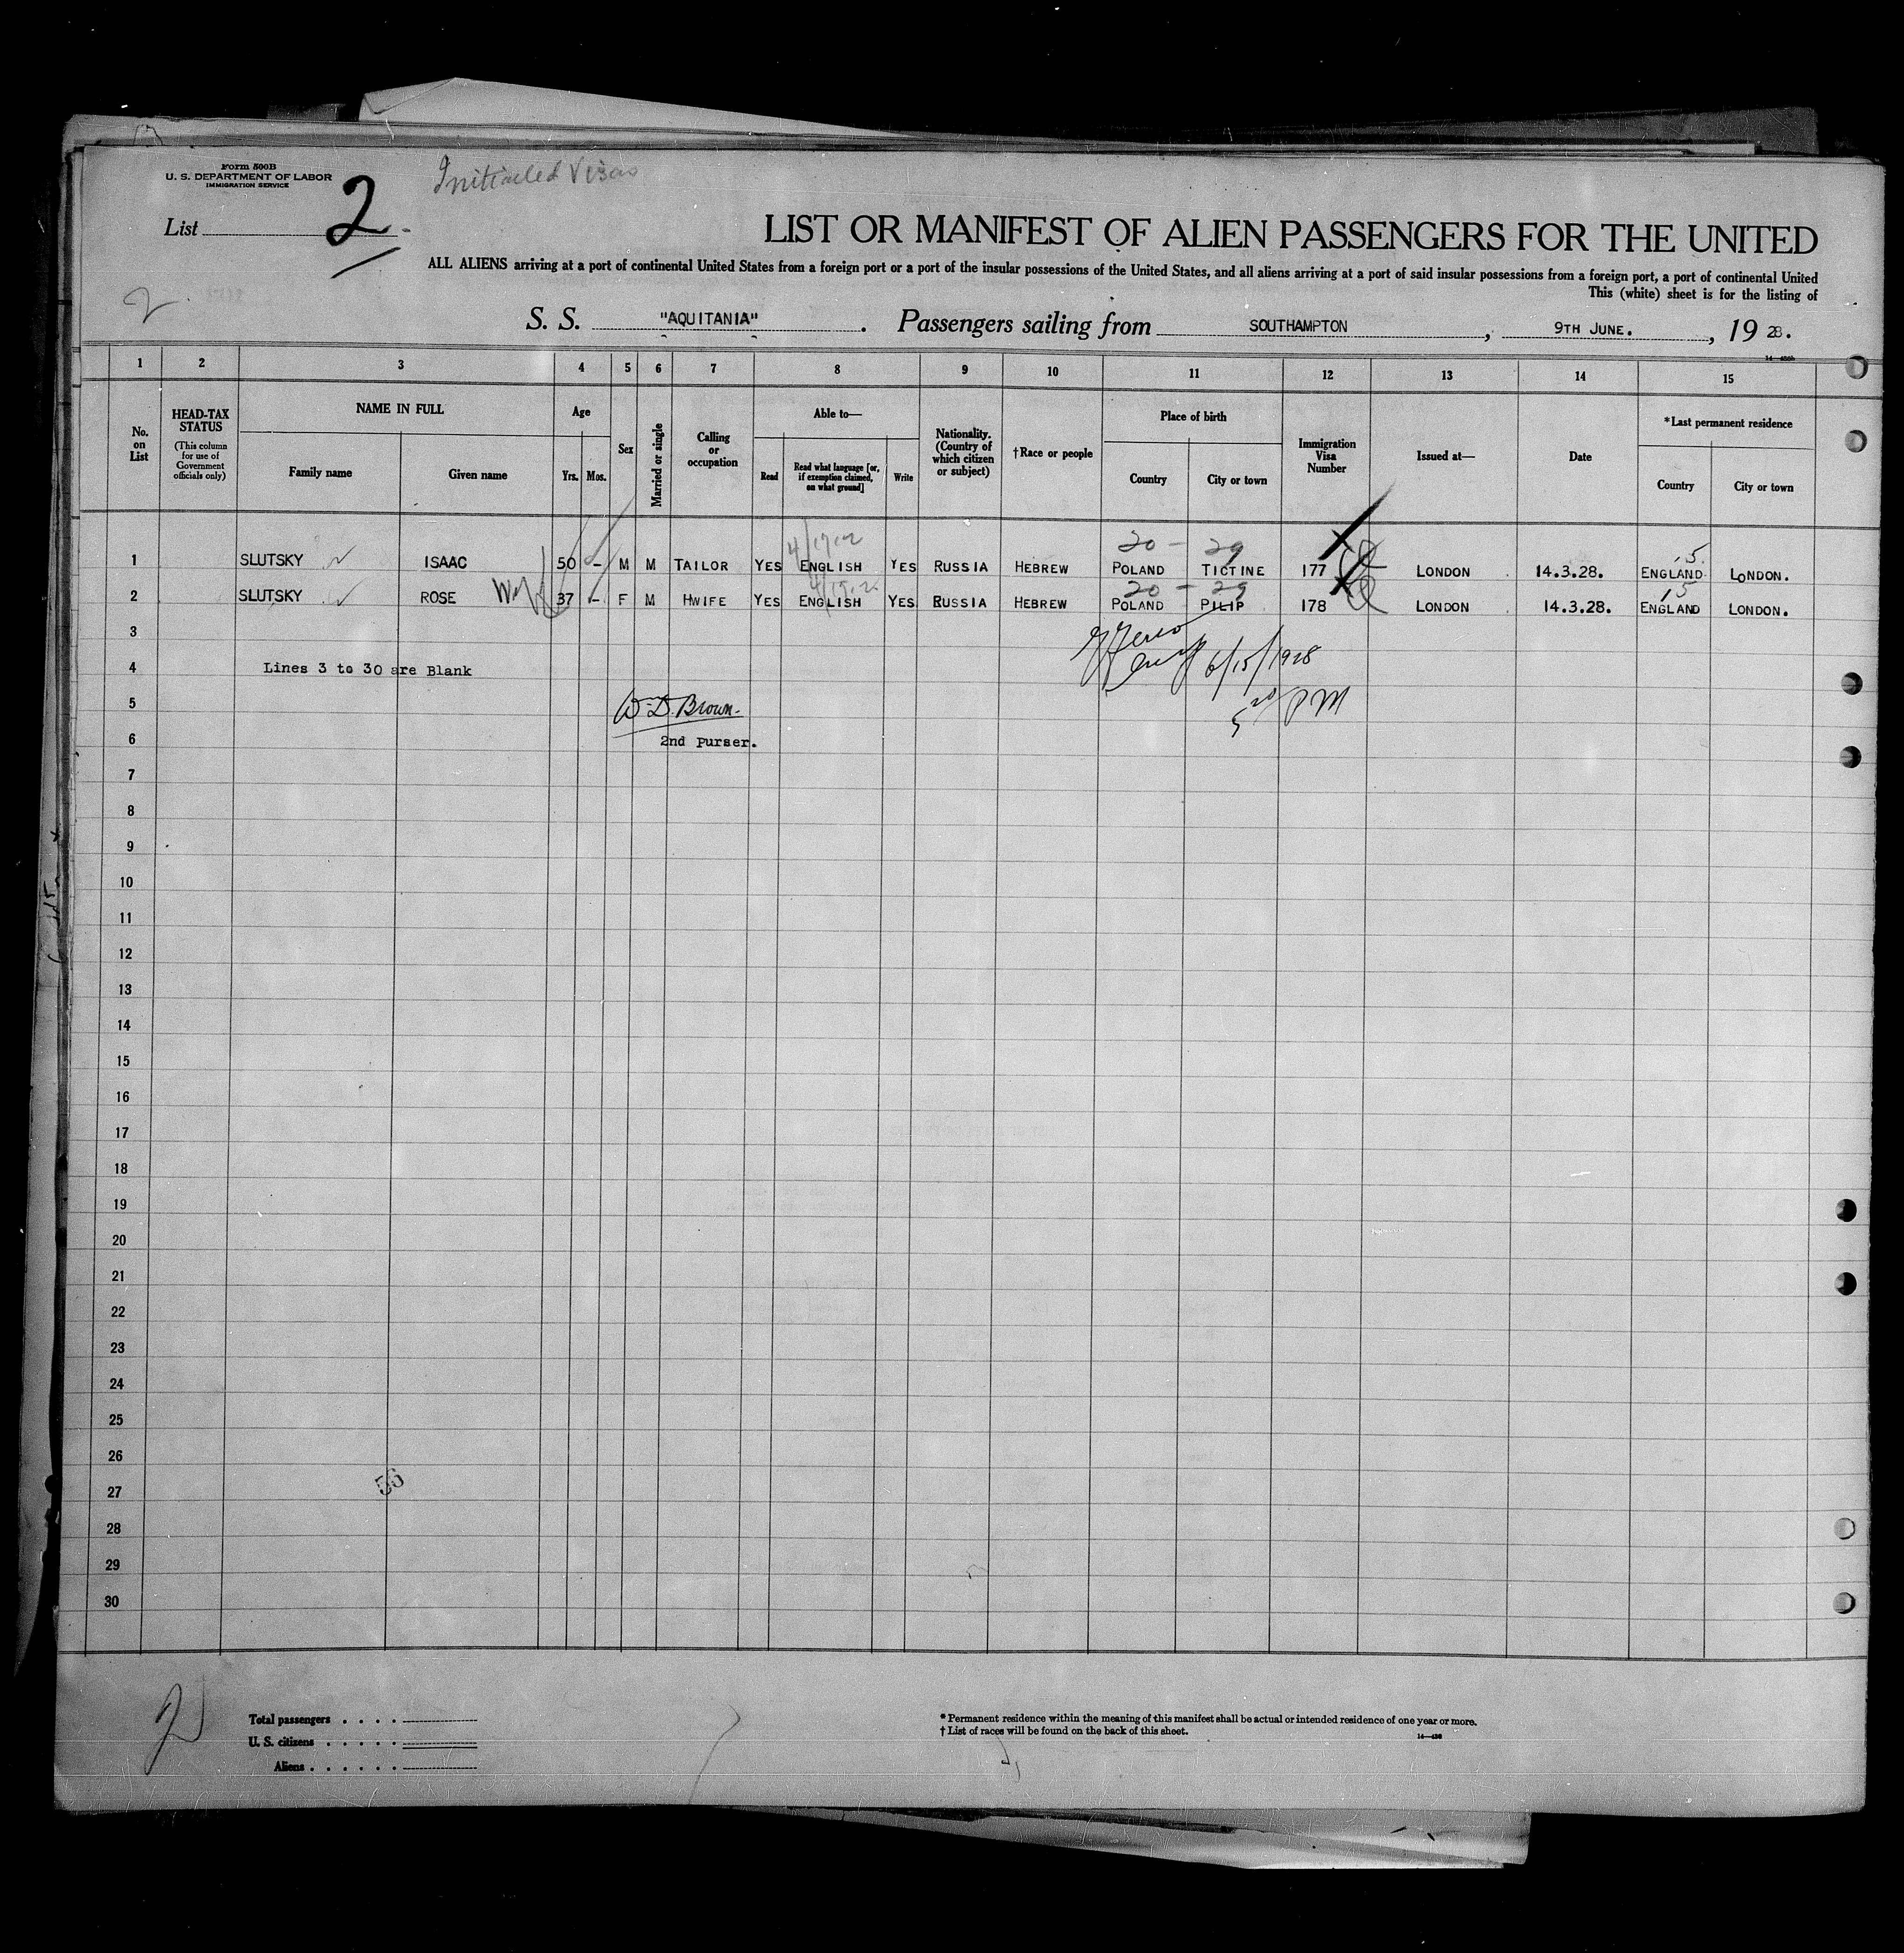 Form 500B
U. S. DEPARTMENT OF LABOR
IMMIGRATION SERVICE
Initialed Visas
List 2
LIST OR MANIFEST OF ALIEN PASSENGERS FOR THE UNITED
ALL ALIENS arriving at a port of continental United States from a foreign port or a port of the insular possessions of the United States, and all aliens arriving at a port of said insular possessions from a foreign port, a port of continental United
This (white) sheet is for the listing of
2
S. S. "AQUITANIA". Passengers sailing from SOUTHAMPTON, 9TH JUNE., 19 28.
1 2 3 4 5 6 7 8 9 10 11 12 13 14 15
No. on List
HEAD-TAX STATUS
(This column for use of Government officials only)
NAME IN FULL
Family name
Given name
Age
Yrs. Mos.
Sex
Married or single
Calling or occupation
Able to—
Read
Read what language [or, if exemption claimed, on what ground]
Write
Nationality. (Country of which citizen or subject)
†Race or people
Place of birth
Country
City or town
Immigration Visa Number
Issued at—
Date
*Last permanent residence
Country
City or town
20 - 29 5
1 SLUTSKY ISAAC 50 – M M TAILOR YES ENGLISH YES RUSSIA HEBREW POLAND TICTINE 177 LONDON 14.3.28. ENGLAND LONDON.
20 - 29 5
2 SLUTSKY ROSE 37 – F M HWIFE YES ENGLISH YES RUSSIA HEBREW POLAND PILIP 178 LONDON 14.3.28. ENGLAND LONDON.
3
4 Lines 3 to 30 are Blank
6/15/1928
5 W. D. Brown.
5 20 PM
6 2nd Purser.
7
8
9
10
11
12
13
14
15
16
17
18
19
20
21
22
23
24
25
26
56
27
28
29
30
2
Total passengers . . . .
U. S. citizens . . . . .
Aliens . . . . . .
* Permanent residence within the meaning of this manifest shall be actual or intended residence of one year or more.
† List of races will be found on the back of this sheet.